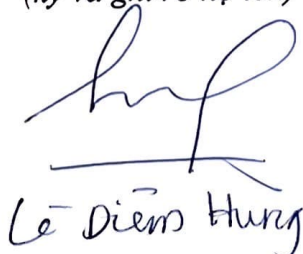 (ký và ghi rõ họ tên)
Lê Diễm Hùng